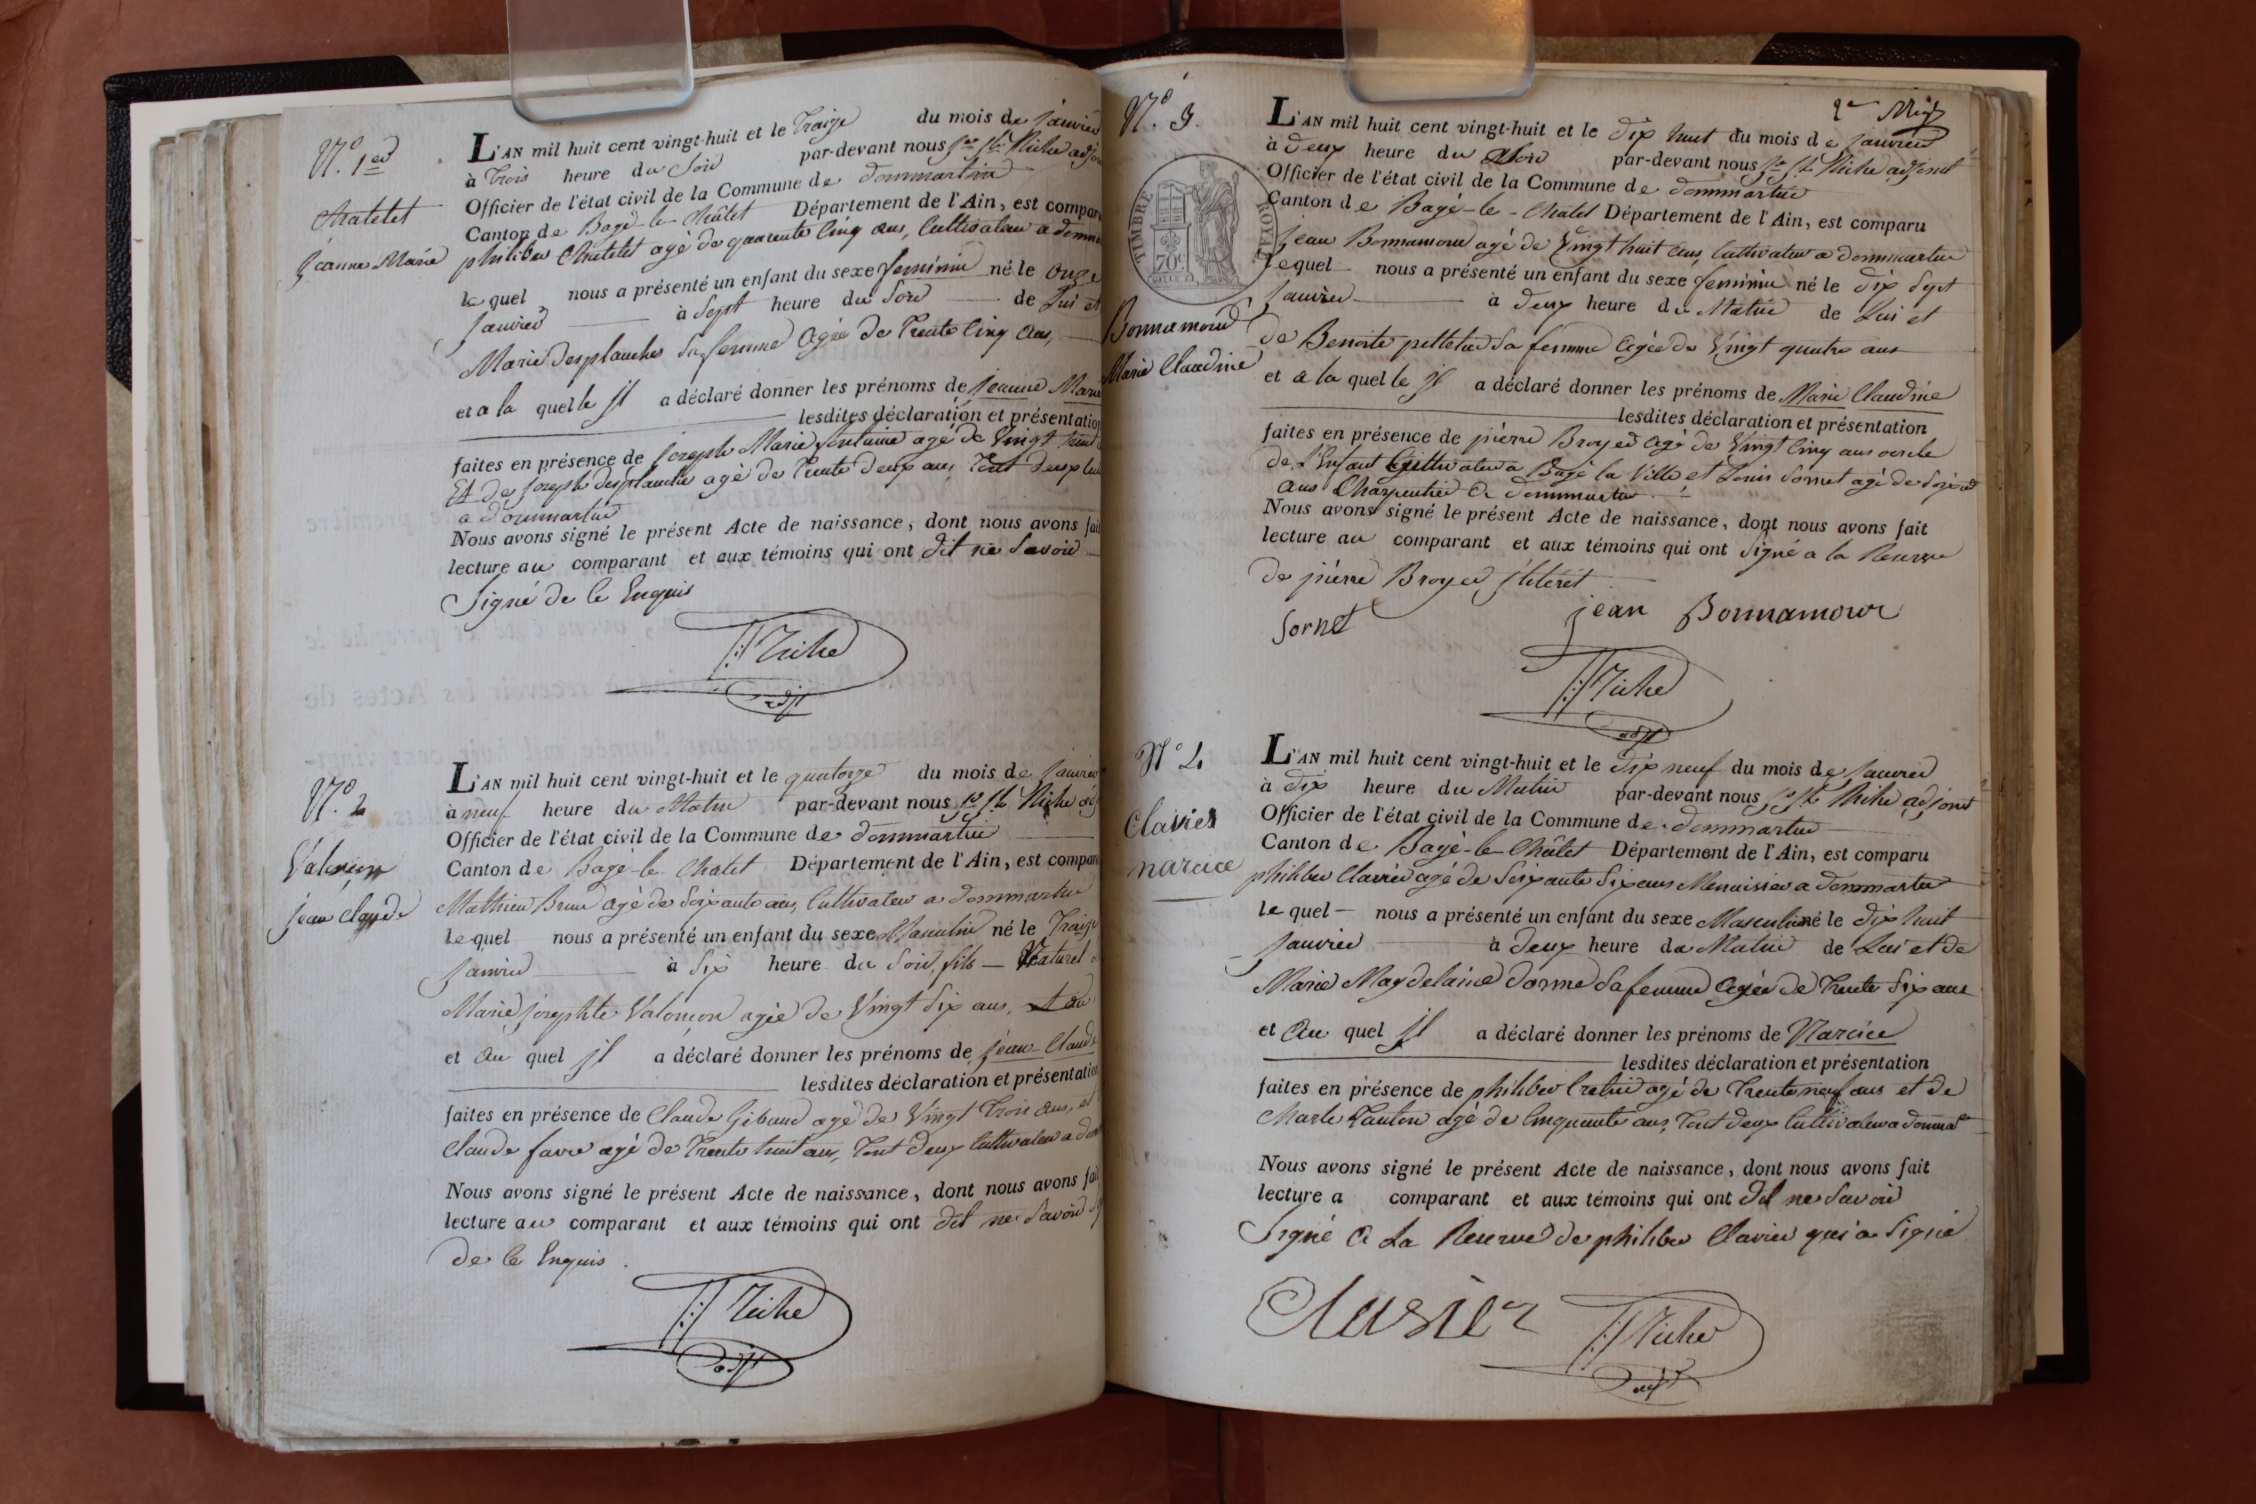 N.° 1er
Chatelet
Jeanne Marie
L'AN mil huit cent vingt-huit et le Traize du mois de Janvier
à Trois heure du Soir par-devant nous
Officier de l'état civil de la Commune de dommartin
Canton de Bagé-le-Châtel Département de l'Ain, est compar
philiber Chatelet agé de quarente Cinq ans, Cultivateur a domm
le quel nous a présenté un enfant du sexe feminin né le Onze
Janvier à Sept heure du Soir de Lui et
Marie desplanches Sa femme Agée de Trente Cinq ans,
et a la quelle jl a déclaré donner les prénoms de Jeanne Marie
lesdites déclaration et présentation
faites en présence de joseph Marie fontaine agé de Vingt huit
Et de joseph desplanche agé de Trente deux ans, Tout deux
a dommartin
Nous avons signé le présent Acte de naissance, dont nous avons fait
lecture au comparant et aux témoins qui ont dit ne Savoir
Signé de Ce Enquis
N.° 2
jean Claude
L'AN mil huit cent vingt-huit et le quatorze du mois de Janvier
à neuf heure du Matin par-devant nous
Officier de l'état civil de la Commune de dommartin
Canton de Bagé-le-Chatel Département de l'Ain, est compar
Mathieu Brun agé de Soixante ans, Cultivateur a dommartin
le quel nous a présenté un enfant du sexe Masculin né le Traize
Janvier à Six heure du Soir, fils Naturel
Marie josephte Valomon agée de Vingt Six ans,
et Au quel jl a déclaré donner les prénoms de jean Claude
lesdites déclaration et présentation
faites en présence de Claude Gibaud agé de Vingt Trois ans, et
Claude favre agé de Trente huit ans, Tout deux Cultivateur a dom
Nous avons signé le présent Acte de naissance, dont nous avons fait
lecture au comparant et aux témoins qui ont dit ne Savoir
de Ce Enquis
N.° 3.
TIMBRE ROYAL
70c
Bonnamour
Marie Claudine
L'AN mil huit cent vingt-huit et le dix huit du mois de Janvier
à deux heure du Soir par-devant nous adjoint
Officier de l'état civil de la Commune de dommartin
Canton de Bagé-le-Chatel Département de l'Ain, est comparu
Jean Bonnamour agé de Vingt huit ans, Cultivateur a dommartin
le quel nous a présenté un enfant du sexe feminin né le dix Sept
Janvier à deux heure du Matin de Lui et
de Benoite pelletier Sa femme Agée de Vingt quatre ans
et a la quelle jl a déclaré donner les prénoms de Marie Claudine
lesdites déclaration et présentation
faites en présence de pierre Broyer agé de Vingt Cinq ans oncle
de l'Enfant Cultivateur a Bagé la Ville et Louis Sornet agé de
ans Charpentier a dommartin
Nous avons signé le présent Acte de naissance, dont nous avons fait
lecture au comparant et aux témoins qui ont Signé a la Reserve
de pierre Broyer jliteret
Sornet
jean Bonnamour
N° 4
Clavier
narcice
L'AN mil huit cent vingt-huit et le dix neuf du mois de Janvier
à dix heure du Matin par-devant nous adjoint
Officier de l'état civil de la Commune de dommartin
Canton de Bagé-le-Châtel Département de l'Ain, est comparu
philiber Clavier agé de Soixante Six ans Menuisier a dommartin
le quel nous a présenté un enfant du sexe Masculin né le dix huit
Janvier à deux heure du Matin de Lui et de
Marie Magdelaine dorme Sa femme Agée de Trente Six ans
et Au quel jl a déclaré donner les prénoms de Narcice
lesdites déclaration et présentation
faites en présence de philiber Cretin agé de Trente neuf ans et de
Charle agé de Cinquante ans, Tout deux Cultivateur a dommat
Nous avons signé le présent Acte de naissance, dont nous avons fait
lecture a comparant et aux témoins qui ont dit ne Savoir
Signé a La Reserve de philiber Clavier qui a Signé
Clavier